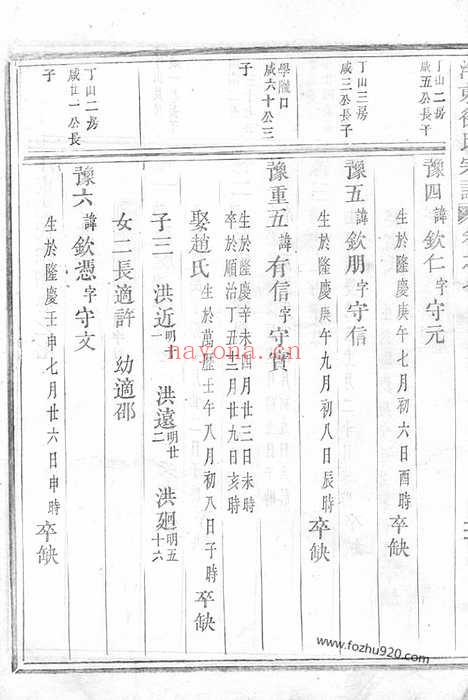 丁山二房
咸五公長子
豫四諱欽仁字守元
生於隆慶庚午七月初六日酉時卒缺
丁山三房
咸三公長子
豫五諱欽朋字守信
生於隆慶庚午九月初八日辰時卒缺
學巗口
咸六十公三
子
豫重五諱有信字守實
生於隆慶辛未四月廿三日未時
卒於順治丁丑三月廿九日亥時
娶趙氏生於萬歷壬午八月初八日子時卒缺
子三 洪近明十一 洪遠明廿二 洪廻明五十六
女二長適許 幼適邵
丁山二房
咸廿一公長
子
豫六諱欽憑字守文
生於隆慶壬申七月廿六日申時卒缺
nayona.cn
www.fozhu920.com